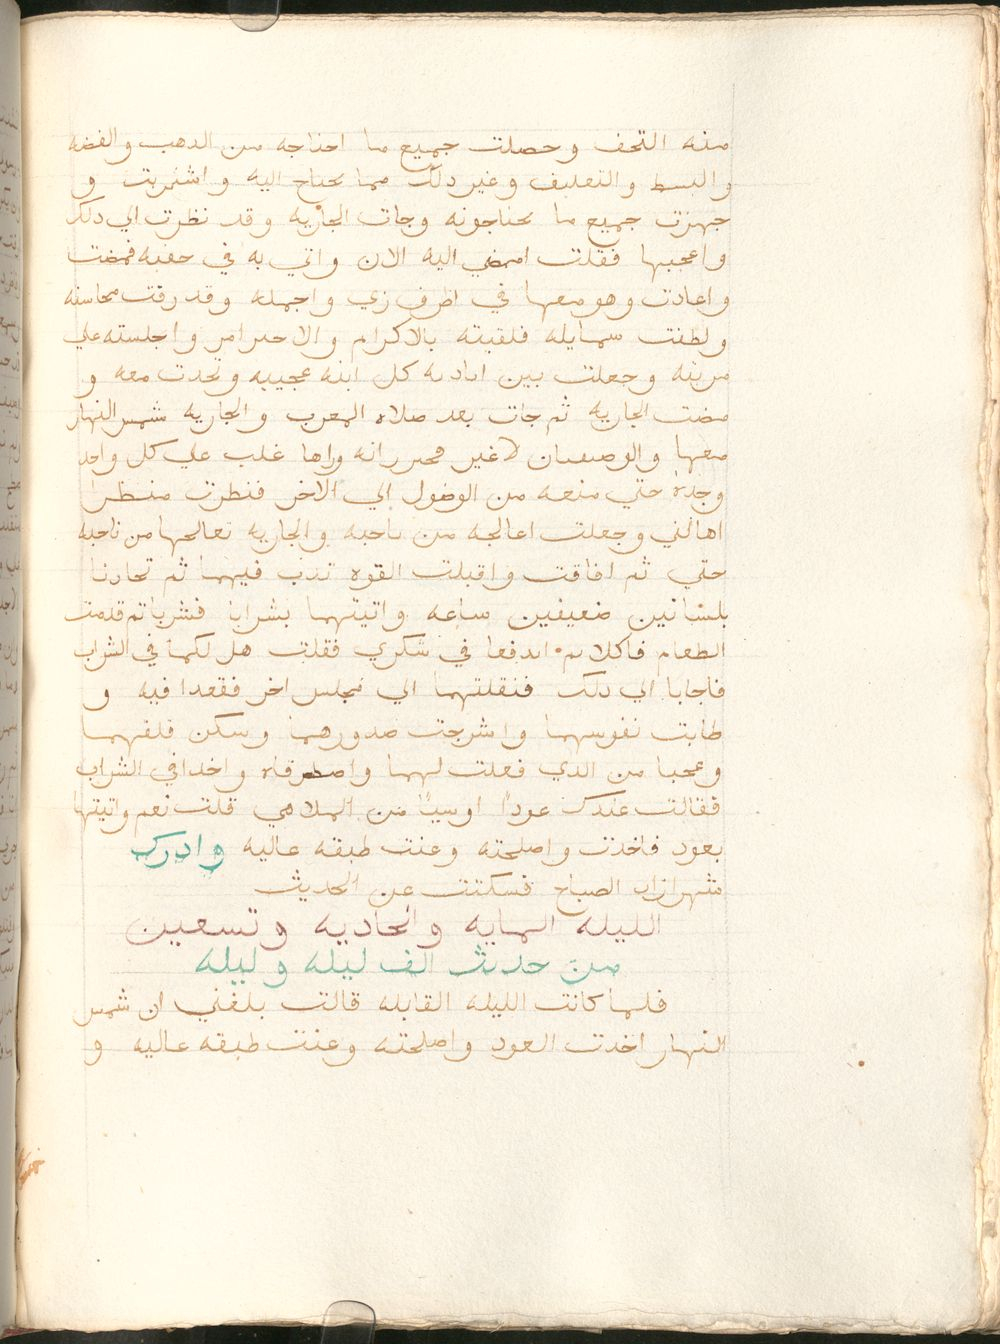 منه التحف وحصلت جميع ما احتاجه من الدهب والفضه
والبسط والتعليق وغير دلك مما يحتاج اليه واشتريت و
جهزت جميع ما يحتاجونه وجات الجاريه وقد نظرت الي دلك
واعجبها فقلت امضي اليه الان واتي به في خفيه فمضت
واعادت وهو معها في اظرف زي واجمله وقد رقت محاسنه
ولطفت شمايله فلقيته بالاكرام والاحترام واجلسته علي
مرتبه وجعلت بين اياديه كل ابنه عجيبه وتحدت معه و
مضت الجاريه ثم جات بعد صلاه المغرب والجاريه شمس النهار
معها والوصيفتان لا غير فحين رانه وراها غلب علي كل واحد
وجده حتي منعه من الوضول الي الاخر فنظرت منظرا
اهالني وجعلت اعالجه من ناحيه والجاريه تعالجها من ناحيه
حتي ثم افاقت واقبلت القوه تدب فيهما ثم تحادثا
بلسانين ضعيفين ساعه واتيتهما بشرابا فشربا تم قدمت
الطعام فاكلا تم اندفعا في شكري فقلت هل لكما في الشراب
فاجابا الي دلك فنقلتهما الي مجلس اخر فقعدا فيه و
طابت نفوسهما وانشرحت صدورهما وسكن قلقهما
وعجبا من الدي فعلت لهما واخدا في الشراب
فقالت عندك عودا اوشيا من الملاهي قلت نعم واتيتها
بعود فاخذت واصلحته وغنت طبقه عاليه وادرك
شهرازاد الصباح فسكتت عن الحديث
الليله المايه والحاديه وتسعين
من حديث الف ليله وليله
فلما كانت الليله القابله قالت بلغني ان شمس
النهار اخدت العود واصلحته وغنت طبقه عاليه و